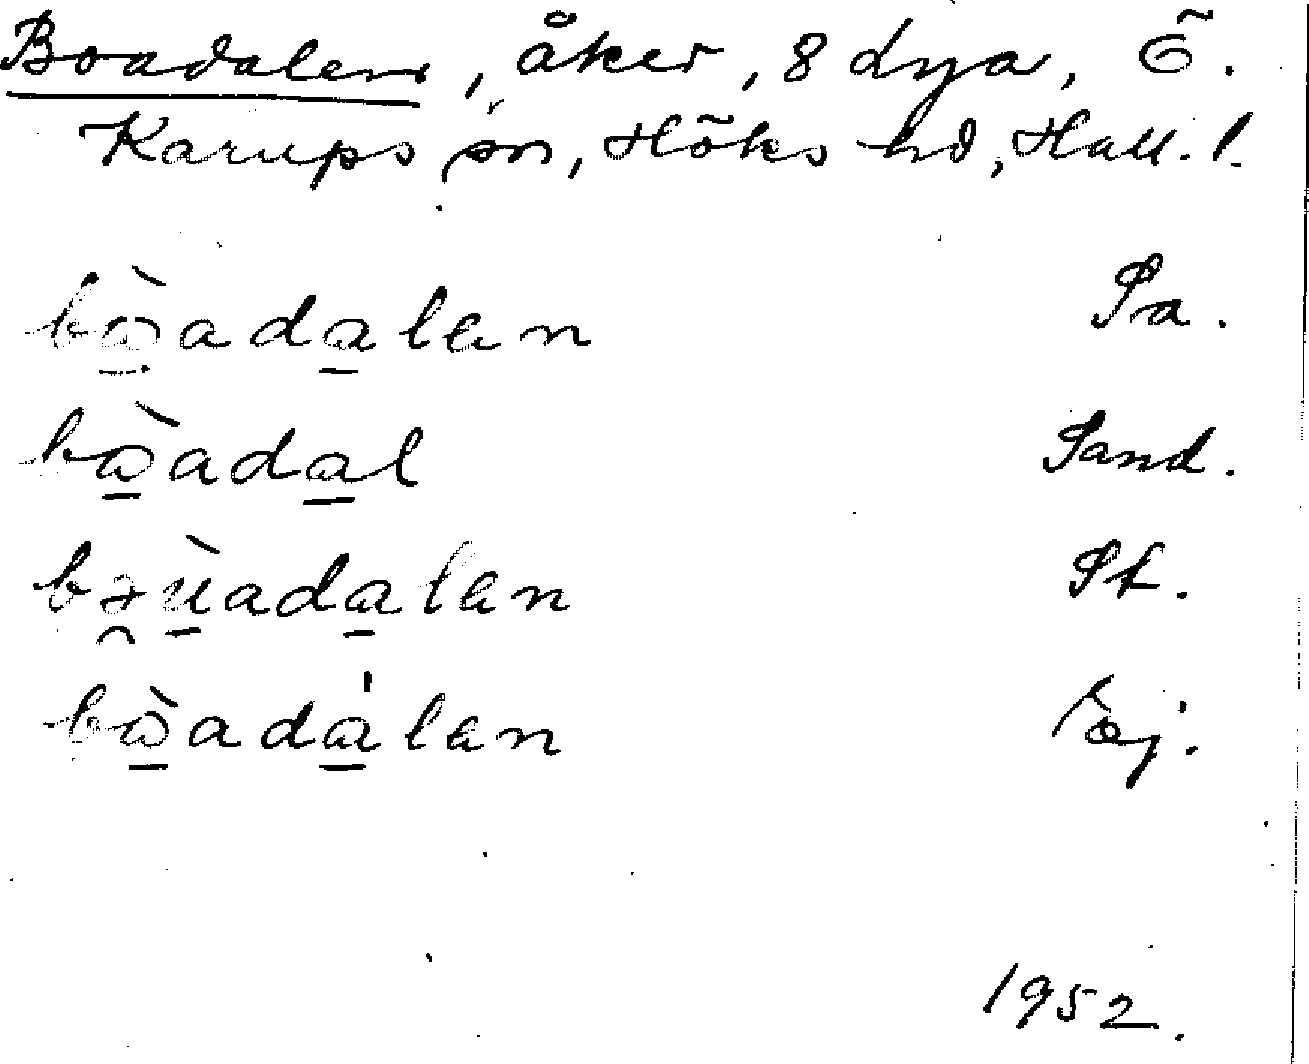 Boadalen, åker, 8 Lya, Ö.
Karups sn, Höks hd, Hall. l.
bòadalen Sa.
bòadal Sand.
bəùadalen St.
bòadálen
1952.